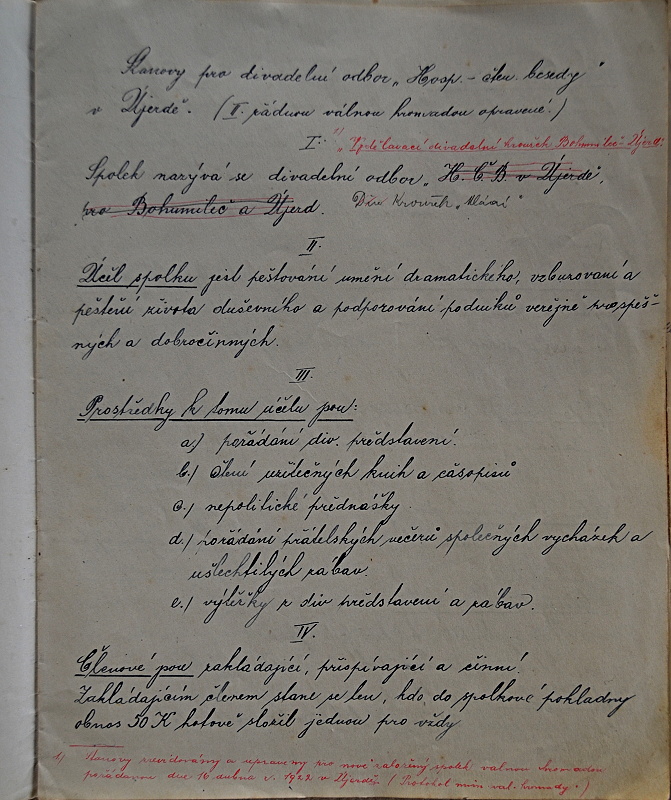 Stanovy pro divadelní odbor „Hosp.-čten. besedy"
v Újezdě. (II. řádnou valnou hromadou opravené.)
I. 1) „Vzdělávací divadelní kroužek Bohumileč-Újezd."
Spolek nazývá se divadelní odbor „H. Č. B. v Újezdě,
pro Bohumileč a Újezd. Div. Kroužek „Mládí"
II.
Účel spolku jest pěstování umění dramatického, vzbuzování a
pěstění života duševního a podporování podniků veřejně prospěš-
ných a dobročinných.
III.
Prostředky k tomu účelu jsou:
a.) pořádání div. představení.
b.) čtení užitečných knih a časopisů
c.) nepolitické přednášky.
d.) pořádání přátelských večerů společných vycházek a
ušlechtilých zábav.
e.) výtěžky z div představení a zábav.
IV.
Členové jsou zakládající, přispívající a činní.
Zakládajícím členem stane se ten, kdo do spolkové pokladny
obnos 50 K hotově složil jednou pro vždy
1) Stanovy revidovány a upraveny pro nově založený spolek valnou hromadou
pořádanou dne 16 dubna r. 1922 v Újezdě. (Protokol mim. val. hromady.)